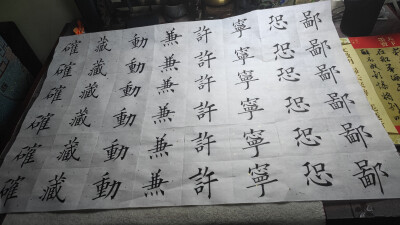 鄙鄙鄙鄙鄙鄙
恐恐恐恐恐恐
寧寧寧寧寧寧
許許許許許許
兼兼兼兼兼兼
動動動動動動
藏藏藏藏藏藏
確確確確確確